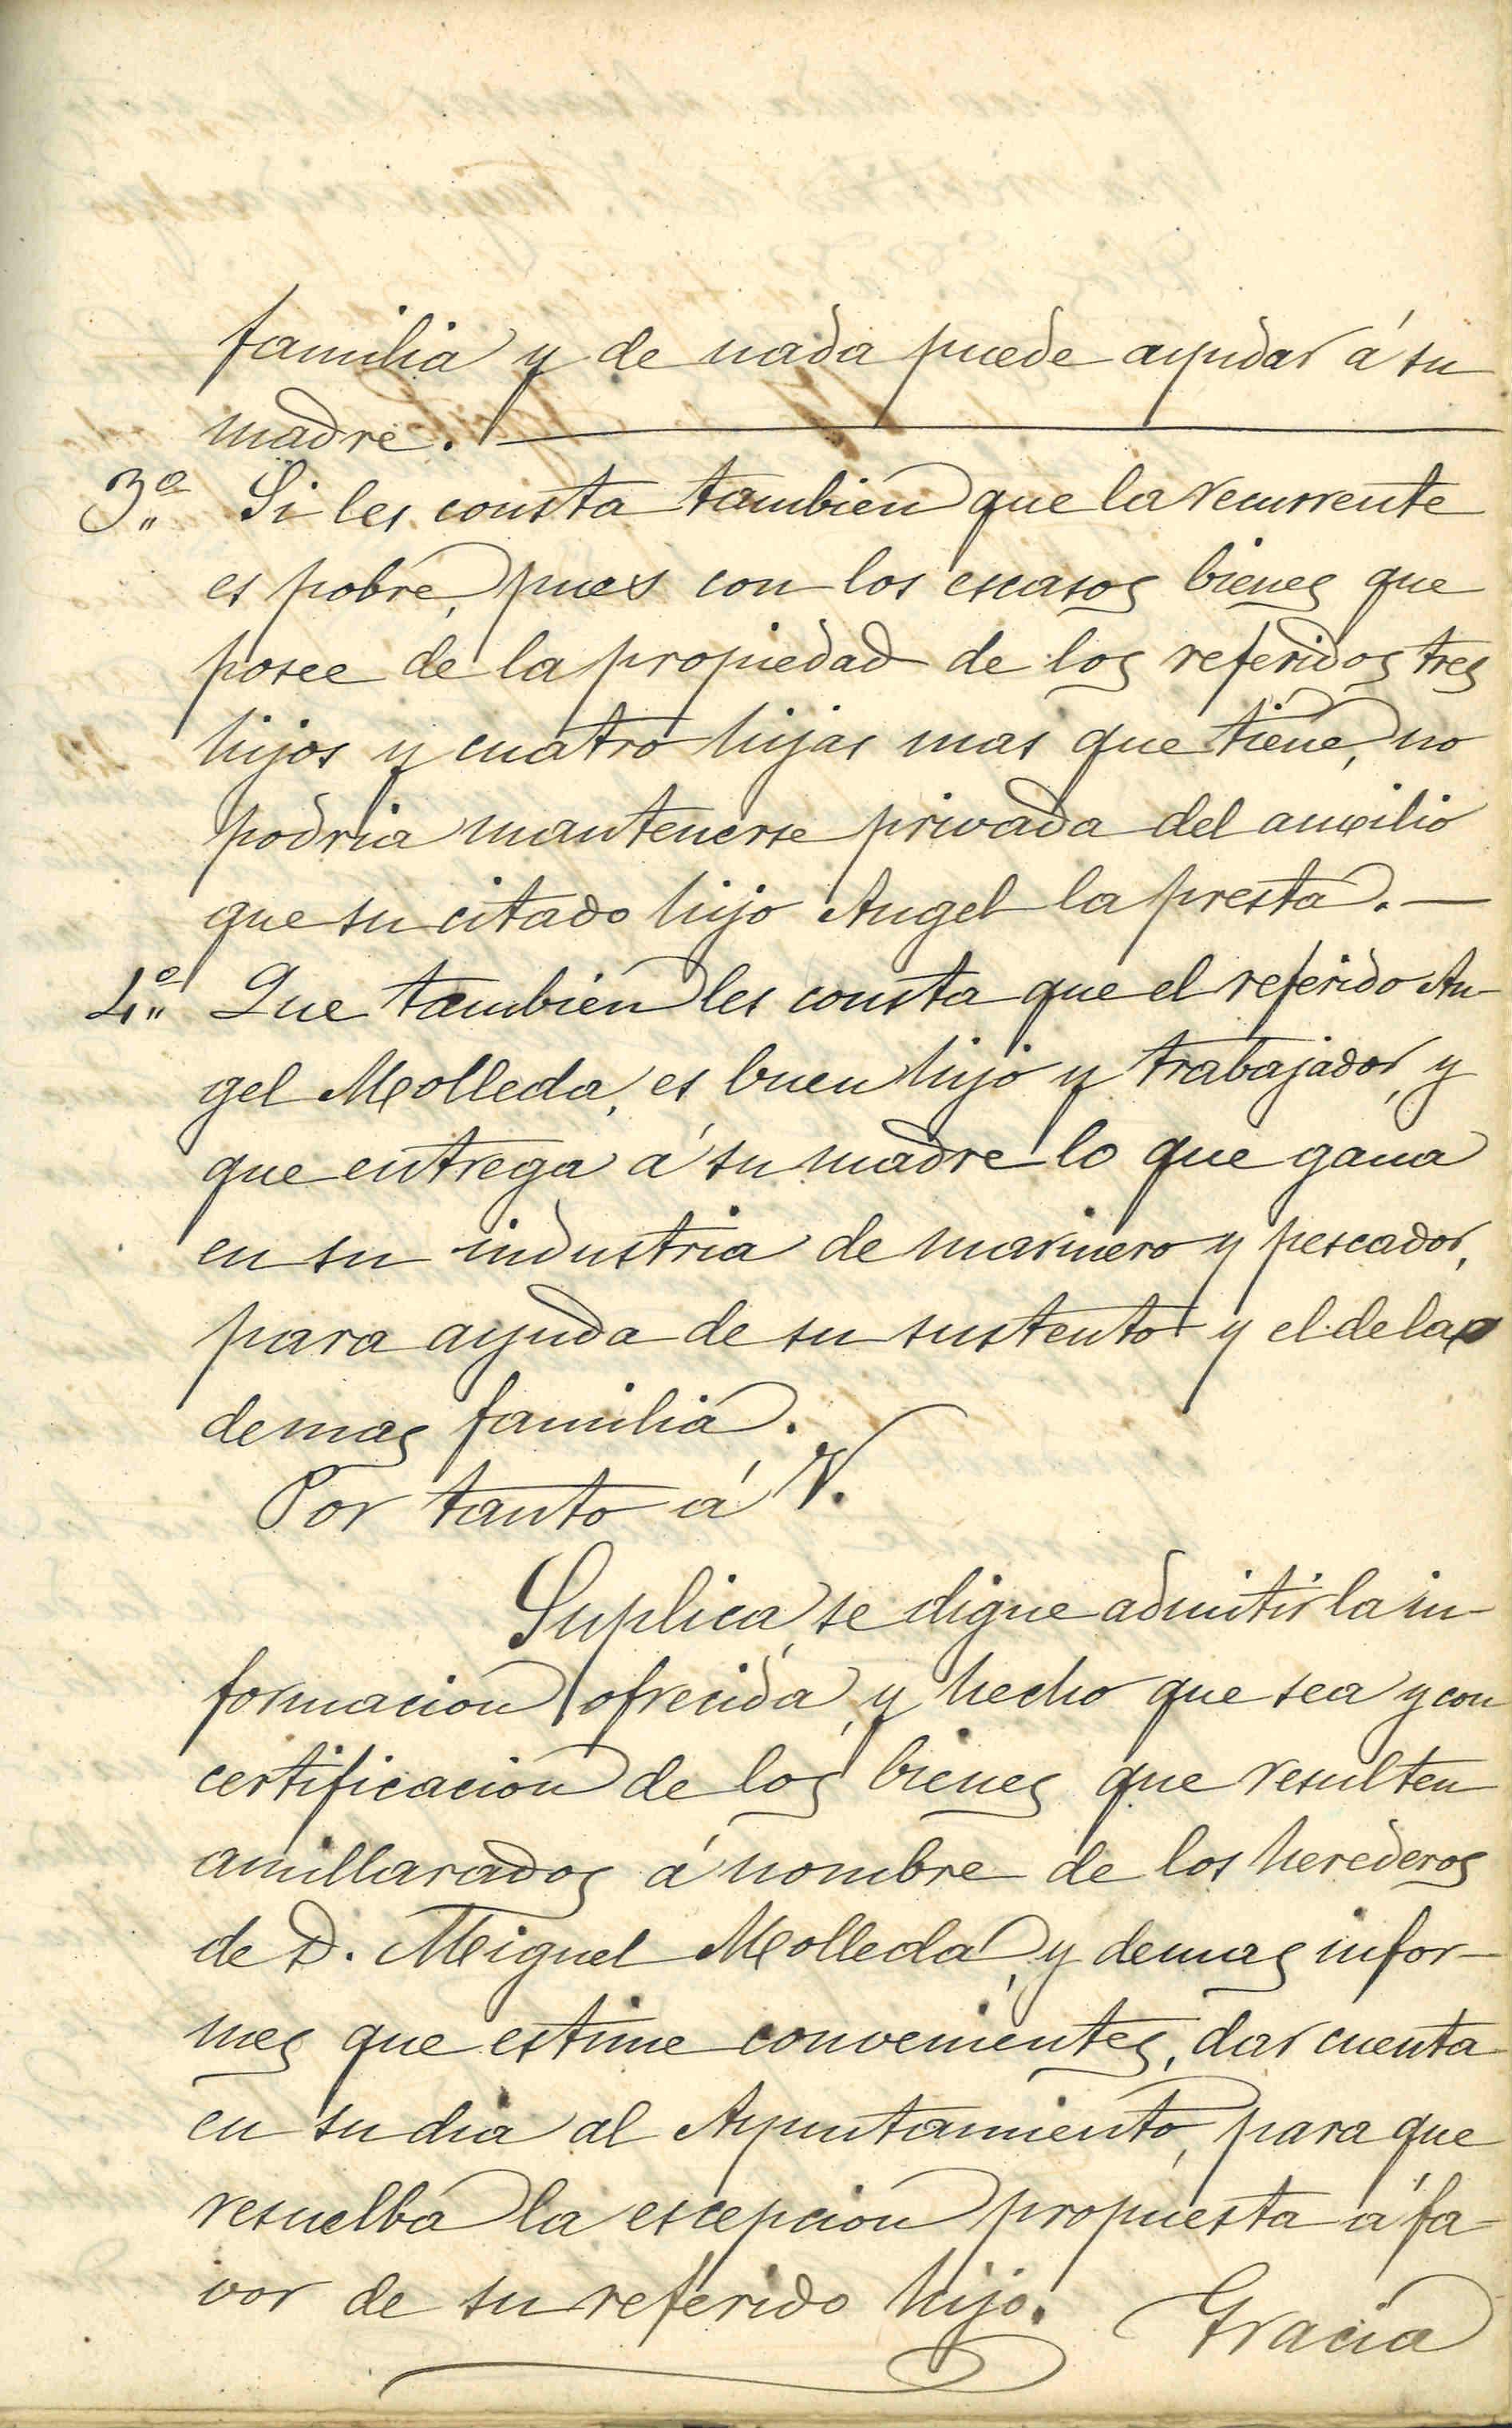 familia y de nada puede ayudar á su
madre. —
3.º Si les consta tambien que la recurrente
es pobre, pues con los escasos bienes que
posee de la propiedad de los referidos tres
hijos y cuatro hijas mas que tiene, no
podria mantenerse privada del auxilio
que su citado hijo Angel la presta. —
4.º Que tambien les consta que el referido An-
gel Molleda, es buen hijo y trabajador, y
que entrega á su madre lo que gana
en su industria de marinero y pescador,
para ayuda de su sustento y el de la
demas familia.
Por tanto á V.
Suplica, se digne admitir la in-
formacion ofrecida, y hecho que sea y con
certificacion de los bienes que resulten
amillarados á nombre de los herederos
de D. Miguel Molleda, y demas infor-
mes que estime convenientes, dar cuenta
en su dia al Ayuntamiento, para que
resuelba la escepcion propuesta á fa-
vor de su referido hijo. Gracia